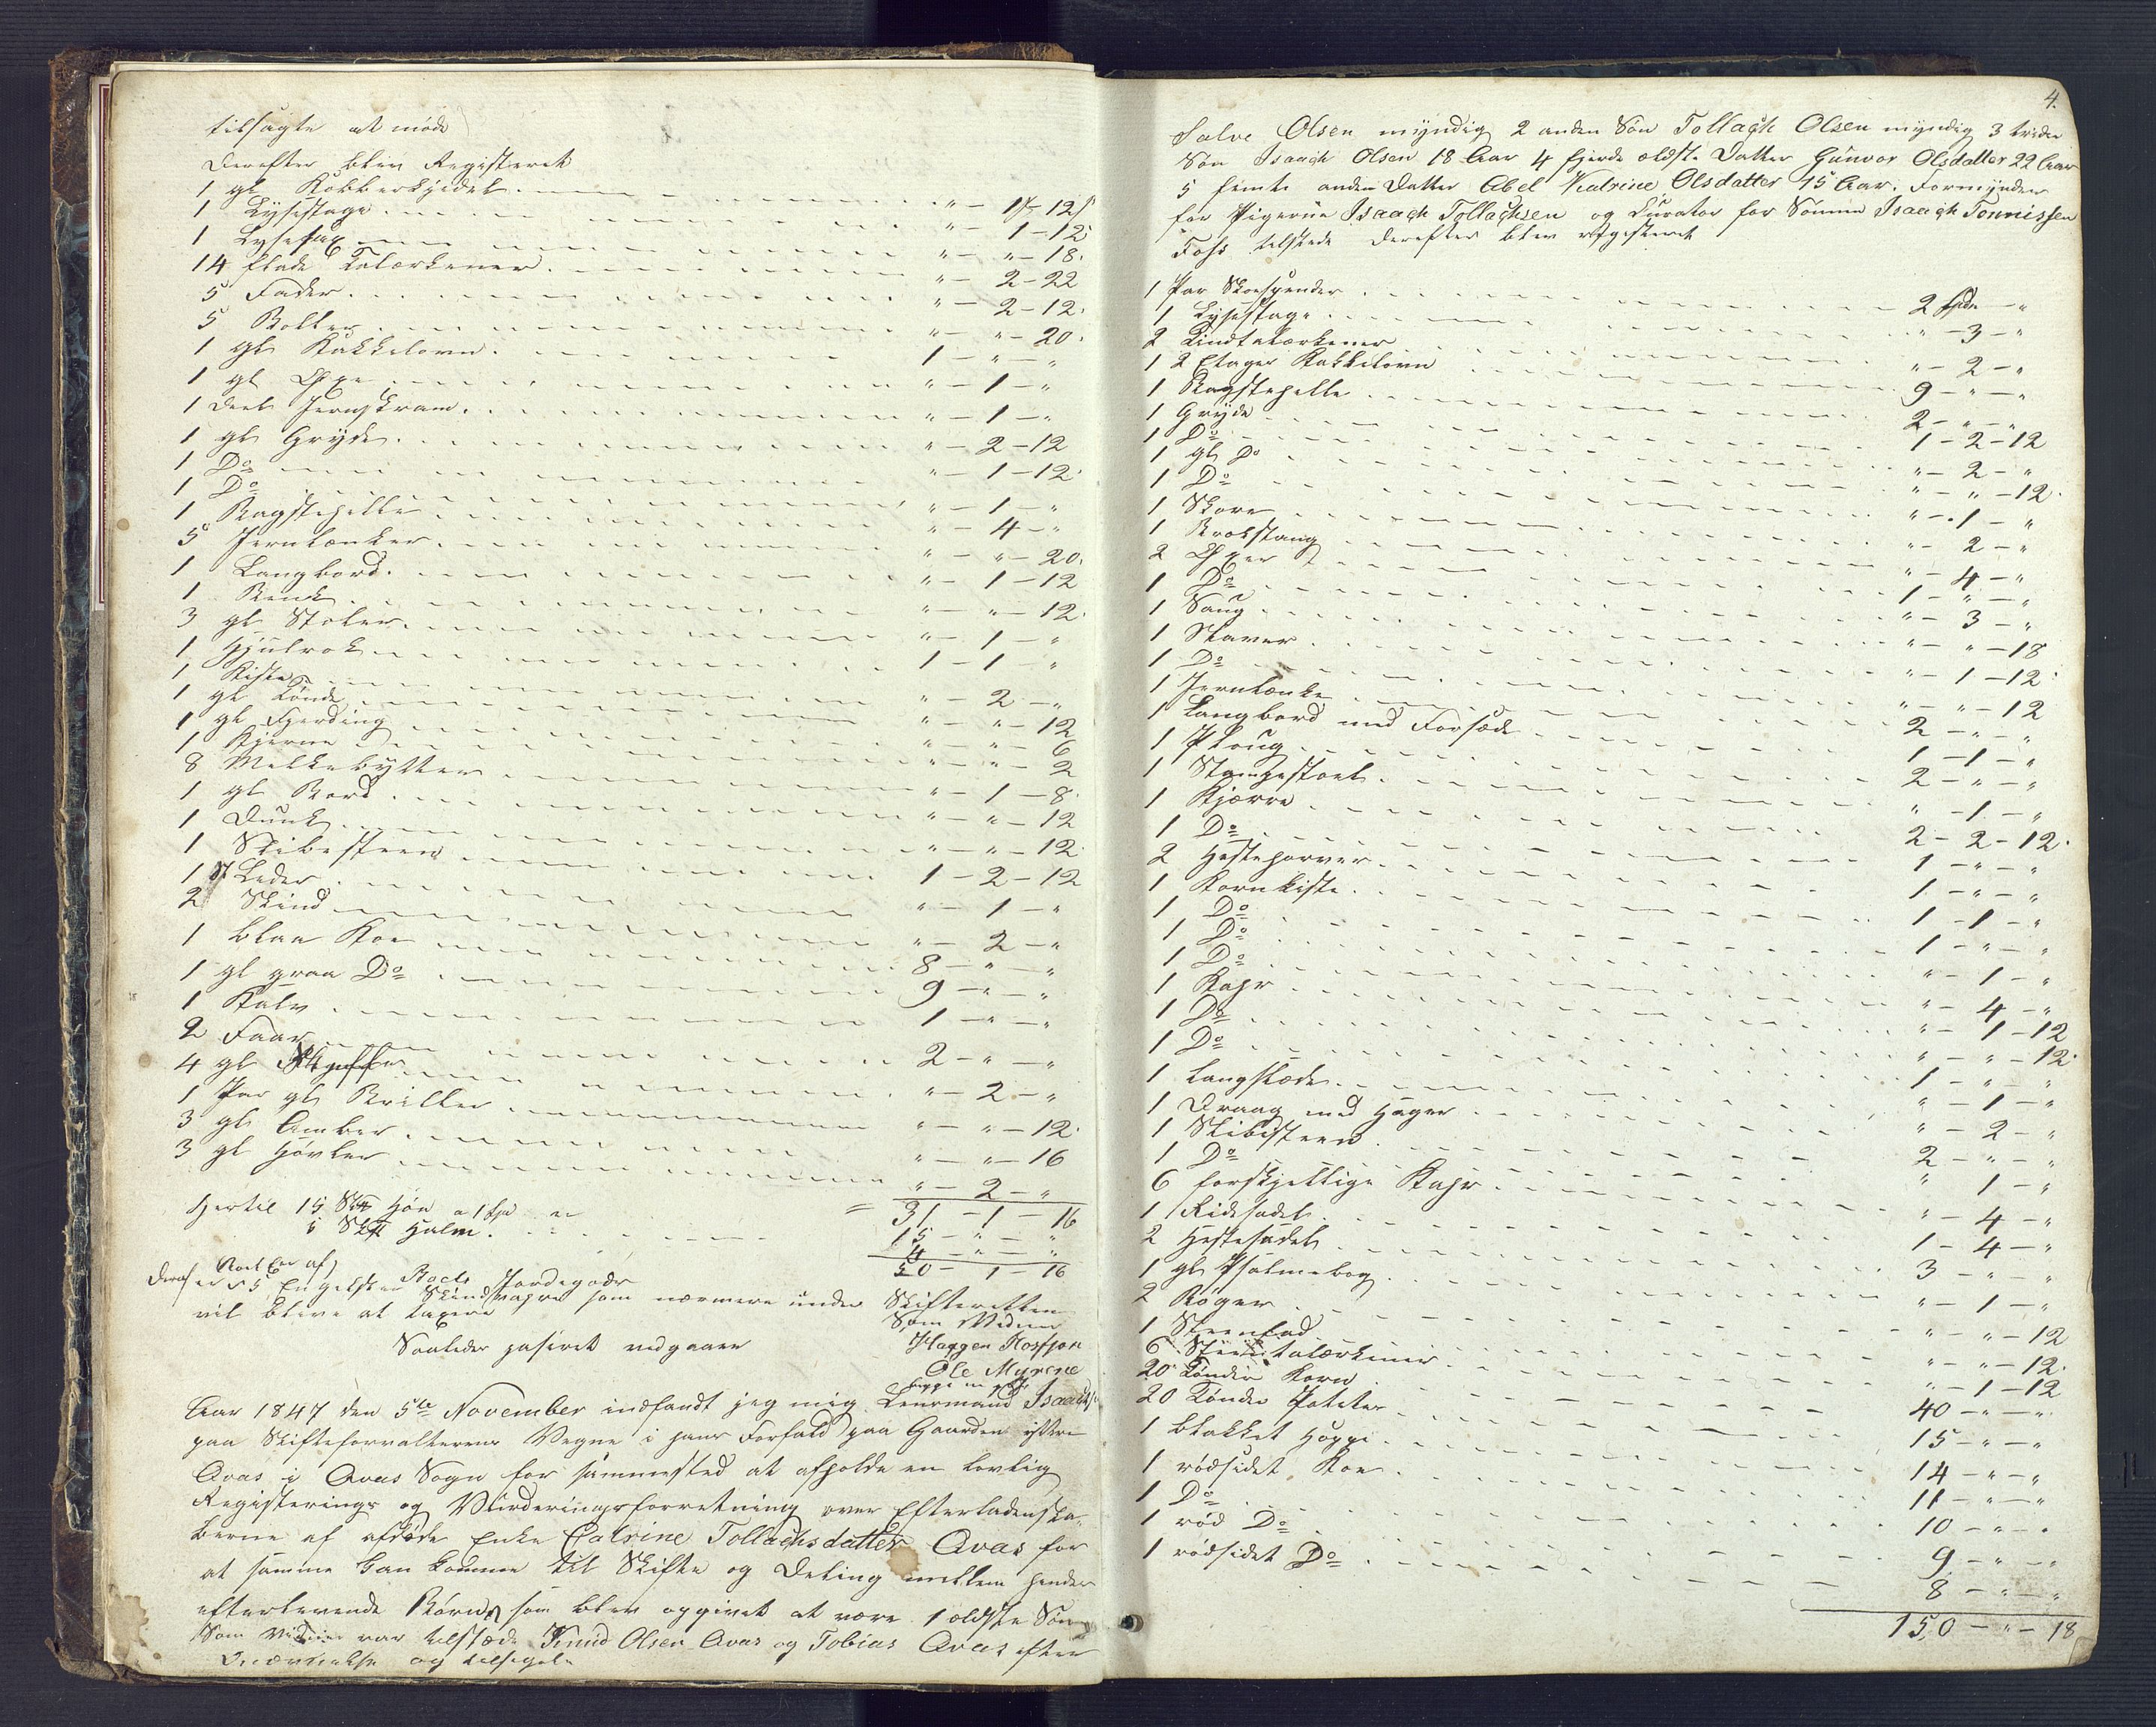 tilsagte at møde
Derefter blev Registeret
1 gl Kobberkjedel " - 1 - 12 s
1 Lysestage " - 1 - 12
1 Lysesax " - " - 18
14 flade Talærkener " - 2 - 22
5 Fader " - 2 - 12
5 Boller " - " - 20
1 gl Kakkelovn 1 - " - "
1 gl Øxe " - 1 - "
1 Deel Jernskram " - 1 - "
1 gl Gryde " - 2 - 12
1 Do " - 1 - 12
1 Do " - 1 - "
1 Bagstehelle " - 4 - "
5 Jernlænker " - " - 20
1 Langbord " - 1 - 12
1 Benk " - " - 12
3 gl Stoler " - 1 - "
1 Hjulrok 1 - 1 - "
1 Kiste " - 2 - "
1 gl Tønde " - " - 12
1 gl Fjerding " - " - 6
1 Kjerne " - " - 2
8 Melkebytter " - 1 - 8
1 gl Bord " - " - 12
1 Dunk " - " - 12
1 Slibesteen 1 - 2 - 12
1 St Leder " - 1 - "
2 Skind " - 2 - "
1 blaa Koe 8 - " - "
1 gl graa Do 9 - " - "
1 Kalv 1 - " - "
2 Faar 2 - " - "
4 gl " - 2 - "
1 Par gl Briller " - " - 12
3 gl Amber " - " - 16
3 gl Høvler " - 2 - "
31 - 1 - 16
Hertil 15 Høe a 1 Spd 15 - " - "
Halm 4 - " - "
50 - 1 - 16
som nærmere under Skifteretten
vil blive at taxere
Som Vidner
Saaledes passeret vedgaaer Haagen Rosfjon
Ole Myrene
Aar 1847 den 5te November indfandt jeg mig Lensmand Isaachs
paa Skifteforvalterens Vegne i hans Forfald paa Gaarden
Avas i Avas Sogn for sammested at afholde en lovlig
Registerings og Vurderingsforretning over Efterladenska-
berne af afdøde Enke Catrine Tollachsdatter Avas for
at samme kan komme til Skifte og Deling mellem hendes
efterlevende Børn som blev opgivet at være 1 ældste Søn
Som Vidner var tilstæde Knud Olsen Avas og Tobias Avas efter
og tilsigelse
4.
Salve Olsen myndig 2 anden Søn Tollagh Olsen myndig 3 tredie
Søn Isaach Olsen 18 Aar 4 fjerde ældste Datter Gunvor Olsdatter 22 Aar
5 femte anden Datter Abel Katrine Olsdatter 15 Aar. Formynder
for Pigerne Isaach Tollachsen og Kurator for Sønnen Isaach Tønnissen
Foss tilstede Derefter blev registeret
1 Par Skoespender 2 Spd - "
1 Lysestage " - 3 - "
2 Tindtalærkener " - 2 - "
1 2 Etages Kakkelovn 9 - " - "
1 Bagstehelle 2 - " - "
1 Gryde 1 - 2 - 12
1 Do " - 2 - "
1 gl Do " - " - 12
1 Do " - 1 - "
1 Skore " - 2 - "
1 Brokstang " - 4 - "
2 Øxer 1 - " - "
1 Do " - 3 - "
1 Saug " - " - 18
1 Naver " - 1 - 12
1 Do " - " - 12
1 Jernlænke 2 - " - "
1 Langbord med Forsæde 1 - 1 - "
1 Ploug 2 - " - "
1 Stangestoel " - 1 - "
1 Kjærre 2 - 2 - 12
1 Do 1 - " - "
2 Hesteharver 1 - " - "
1 Kornkiste 1 - 1 - "
1 Do 1 - " - "
1 Do " - 1 - "
1 Do " - 4 - "
1 Kar " - 1 - 12
1 Do " - " - 12
1 Do 1 - " - "
1 Langslæde " - 1 - "
1 Draag med Hager " - 2 - "
1 Slibesteen 2 - " - "
1 Do " 1 - "
6 forskjellige Kar " - 4 - "
1 Ridesadel 1 - 4 - "
2 Hestesadel 3 - " - "
1 gl Psalmebog " - 1 - "
2 Bøger " - " - 12
1 Steenfad " - " - 12
6 Steentalærkener " - 1 - 12
20 Tønder Korn 40 - " - "
20 Tønder Poteter 15 - " - "
1 blakket Hoppe 14 - " - "
1 rødsidet Koe 11 - " - "
1 Do 10 - " - "
1 rød Do 9 - " - "
1 rødsidet Do 8 - " - "
150 - " - 18